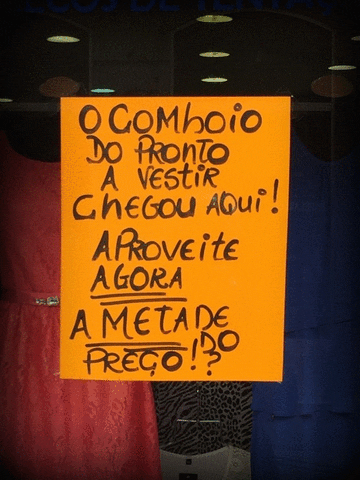 ECOS DE TENTAÇ
O COMboio
DO PRONTO
A VESTIR
CHEGOU AQUI!
APROVEITE
AGORA
A METADE
DO
PREÇO!?